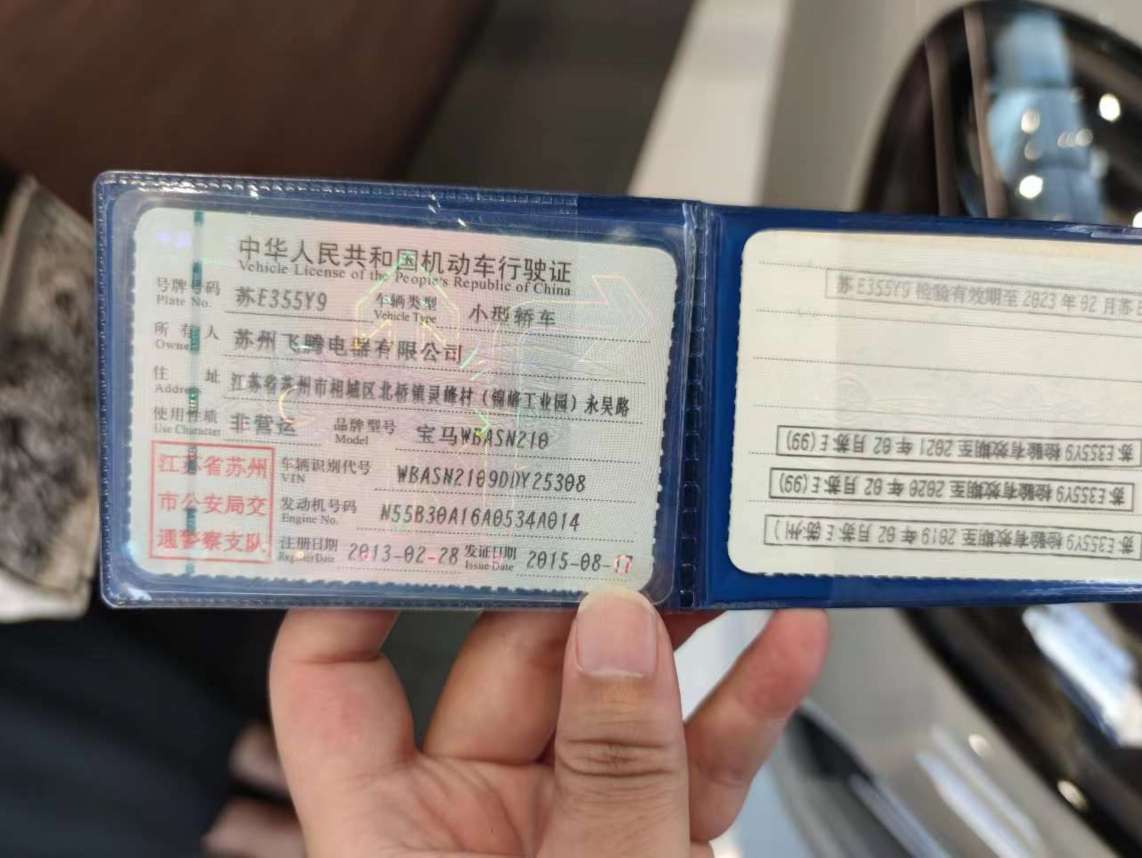 中华人民共和国机动车行驶证
Vehicle License of the People's Republic of China
号牌号码 苏E355Y9 车辆类型 小型轿车
Plate No. Vehicle Type
所有人 苏州飞腾电器有限公司
Owner
住址 江苏省苏州市相城区北桥镇灵峰村(锦峰工业园)永吴路
Address
使用性质 非营运 品牌型号 宝马WBASN210
Use Character Model
江苏省苏州
市公安局交
通警察支队
车辆识别代号 WBASN2109DDY25308
VIN
发动机号码 N55B30A16A0534A014
Engine No.
注册日期 2013-02-28 发证日期 2015-08-17
Register Date Issue Date
苏E355Y9 检验有效期至 2023 年 02 月苏
苏E355Y9 检验有效期至 2021 年 02 月苏E(99)
苏E355Y9 检验有效期至 2020 年 02 月苏E(99)
苏E355Y9 检验有效期至 2019 年 02 月苏E(苏州)